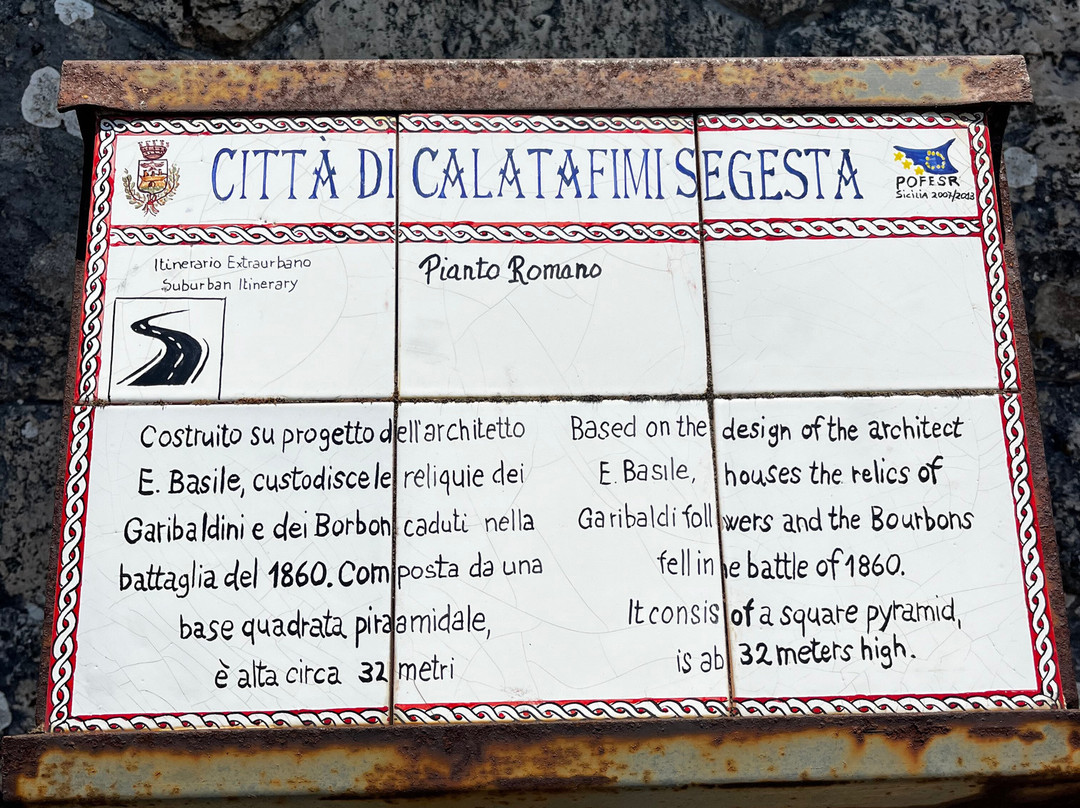 CITTÀ DI CALATAFIMI SEGESTA
POFESR
Sicilia 2007/2013
Itinerario Extraurbano
Suburban Itinerary
Pianto Romano
Costruito su progetto dell'architetto
E. Basile, custodisce le reliquie dei
Garibaldini e dei Borbon caduti nella
battaglia del 1860. Composta da una
base quadrata piraamidale,
è alta circa 32 metri
Based on the design of the architect
E. Basile, houses the relics of
Garibaldi foll wers and the Bourbons
fell in e battle of 1860.
It consis of a square pyramid,
is ab 32 meters high.